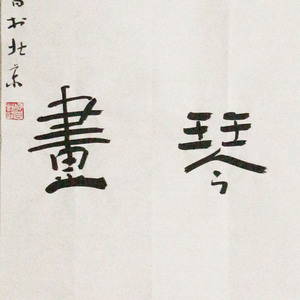 琴畫
於北京